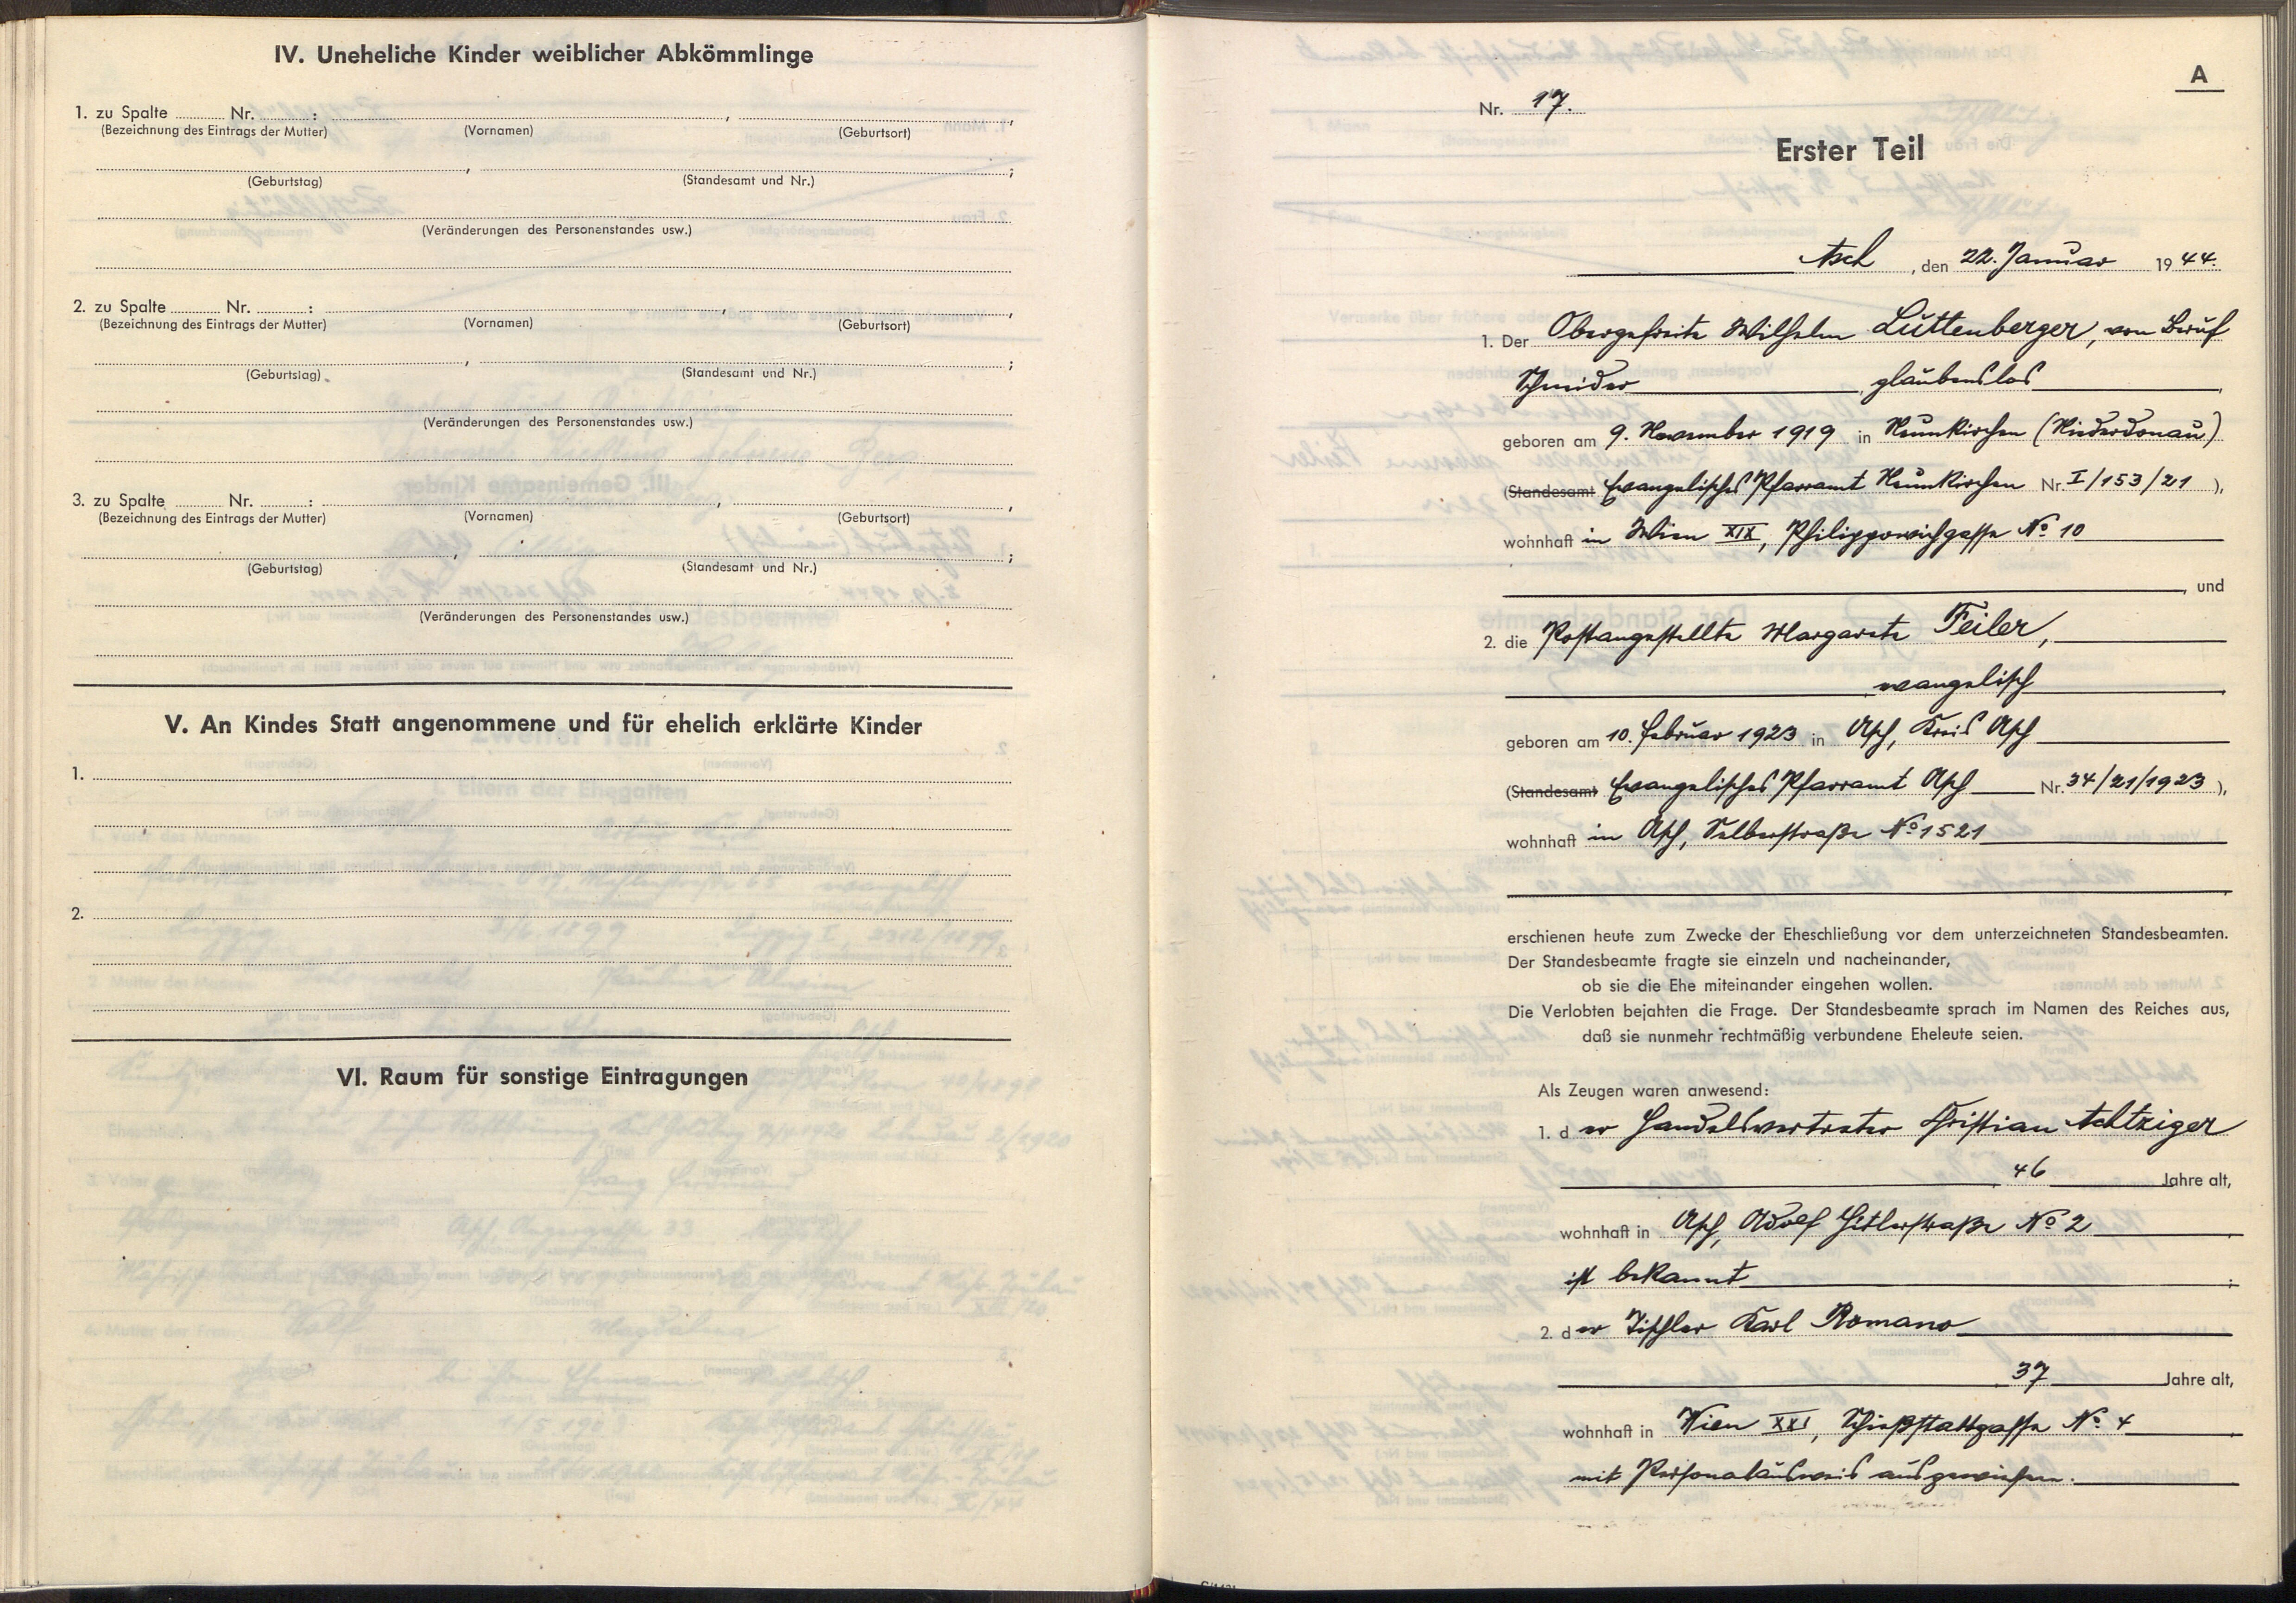 IV. Uneheliche Kinder weiblicher Abkömmlinge
1. zu Spalte ........ Nr. ........ :
(Bezeichnung des Eintrags der Mutter) (Vornamen) (Geburtsort)
(Geburtstag) (Standesamt und Nr.)
(Veränderungen des Personenstandes usw.)
2. zu Spalte ........ Nr. ........ :
(Bezeichnung des Eintrags der Mutter) (Vornamen) (Geburtsort)
(Geburtstag) (Standesamt und Nr.)
(Veränderungen des Personenstandes usw.)
3. zu Spalte ........ Nr. ........ :
(Bezeichnung des Eintrags der Mutter) (Vornamen) (Geburtsort)
(Geburtstag) (Standesamt und Nr.)
(Veränderungen des Personenstandes usw.)
V. An Kindes Statt angenommene und für ehelich erklärte Kinder
1.
2.
VI. Raum für sonstige Eintragungen
A
Nr. 17.
Erster Teil
Asch, den 22. Januar 1944.
1. Der Obergefreite Wilhelm Luttenberger, von Beruf
Schneider, glaubenslos,
geboren am 9. November 1919 in Neunkirchen (Niederdonau)
(Standesamt Evangelisches Pfarramt Neunkirchen Nr. I/153/21),
wohnhaft in Wien XIX, Philippovichgasse No 10
, und
2. die Postangestellte Margarete Feiler,
evangelisch,
geboren am 10. Februar 1923 in Asch, Kreis Asch
(Standesamt Evangelisches Pfarramt Asch Nr. 34/21/1923),
wohnhaft in Asch, Selberstraße No 1521
erschienen heute zum Zwecke der Eheschließung vor dem unterzeichneten Standesbeamten.
Der Standesbeamte fragte sie einzeln und nacheinander,
ob sie die Ehe miteinander eingehen wollen.
Die Verlobten bejahten die Frage. Der Standesbeamte sprach im Namen des Reiches aus,
daß sie nunmehr rechtmäßig verbundene Eheleute seien.
Als Zeugen waren anwesend:
1. der Handelsvertreter Christian Achtziger
46 Jahre alt,
wohnhaft in Asch, Adolf Hitlerstraße No 2
ist bekannt ;
2. der Tischler Karl Romano
37 Jahre alt,
wohnhaft in Wien XXI, Schießstattgasse No 4
mit Personalausweis ausgewiesen.